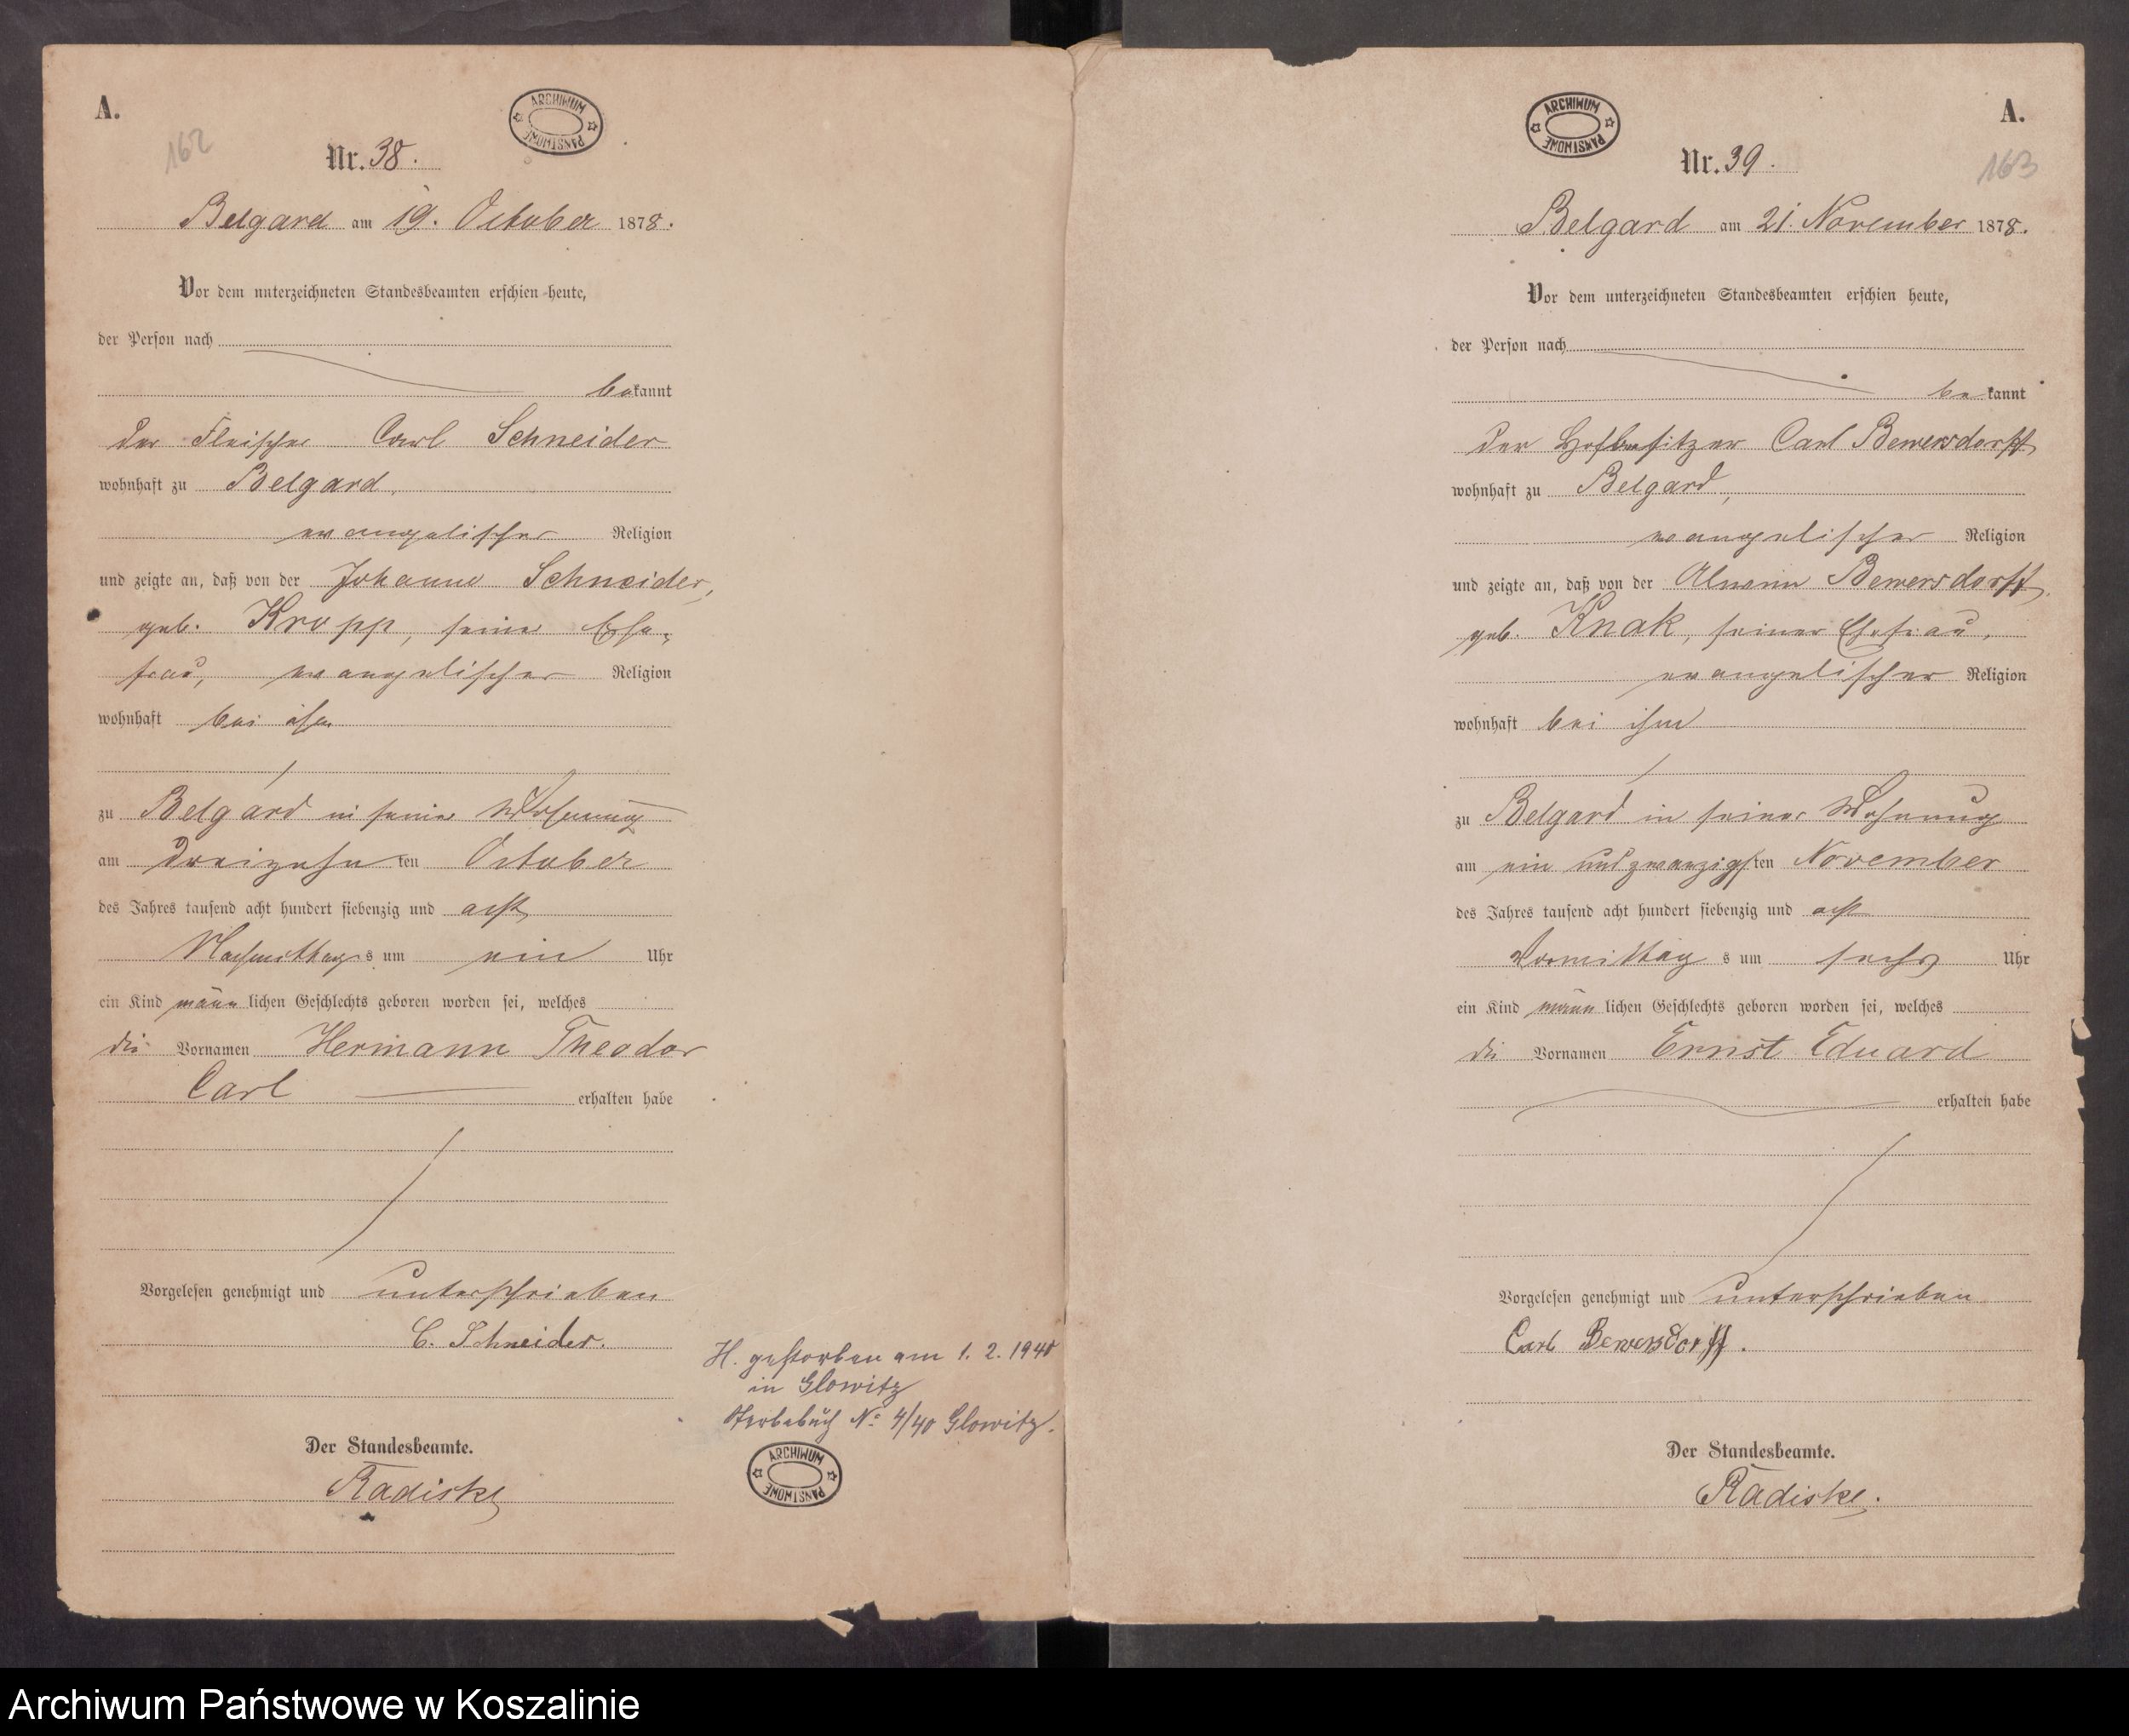 A.
162
ARCHIWUM PAŃSTWOWE
Nr. 38.
Belgard am 19. October 1878.
Vor dem unterzeichneten Standesbeamten erschien heute,
der Person nach
bekannt
der Fleischer Carl Schneider
wohnhaft zu Belgard,
evangelischer Religion
und zeigte an, daß von der Johanne Schneider,
geb. Kropp, seine Ehe-
frau, evangelischer Religion
wohnhaft bei ihm
zu Belgard in seiner Wohnung
am dreizehn ten October
des Jahres tausend acht hundert siebenzig und acht
Nachmittags um ein Uhr
ein Kind männlichen Geschlechts geboren worden sei, welches
die Vornamen Hermann Theodor
Carl erhalten habe
Vorgelesen genehmigt und unterschrieben
C. Schneider.
H. gestorben am 1. 2. 1940
in Glowitz
Sterbebuch No 4/40 Glowitz.
ARCHIWUM PAŃSTWOWE
Der Standesbeamte.
Radiske
A.
163
ARCHIWUM PAŃSTWOWE
Nr. 39.
Belgard am 21. November 1878.
Vor dem unterzeichneten Standesbeamten erschien heute,
der Person nach
bekannt
der Hofbesitzer Carl Bewersdorff
wohnhaft zu Belgard,
evangelischer Religion
und zeigte an, daß von der Bewersdorff,
geb. Knak, seiner Ehefrau,
evangelischer Religion
wohnhaft bei ihm
zu Belgard in seiner Wohnung
am ein und zwanzigsten November
des Jahres tausend acht hundert siebenzig und acht
Vormittags um sechs Uhr
ein Kind männlichen Geschlechts geboren worden sei, welches
die Vornamen Ernst Eduard
erhalten habe
Vorgelesen genehmigt und unterschrieben
Carl Bewersdorff.
Der Standesbeamte.
Radiske.
Archiwum Państwowe w Koszalinie